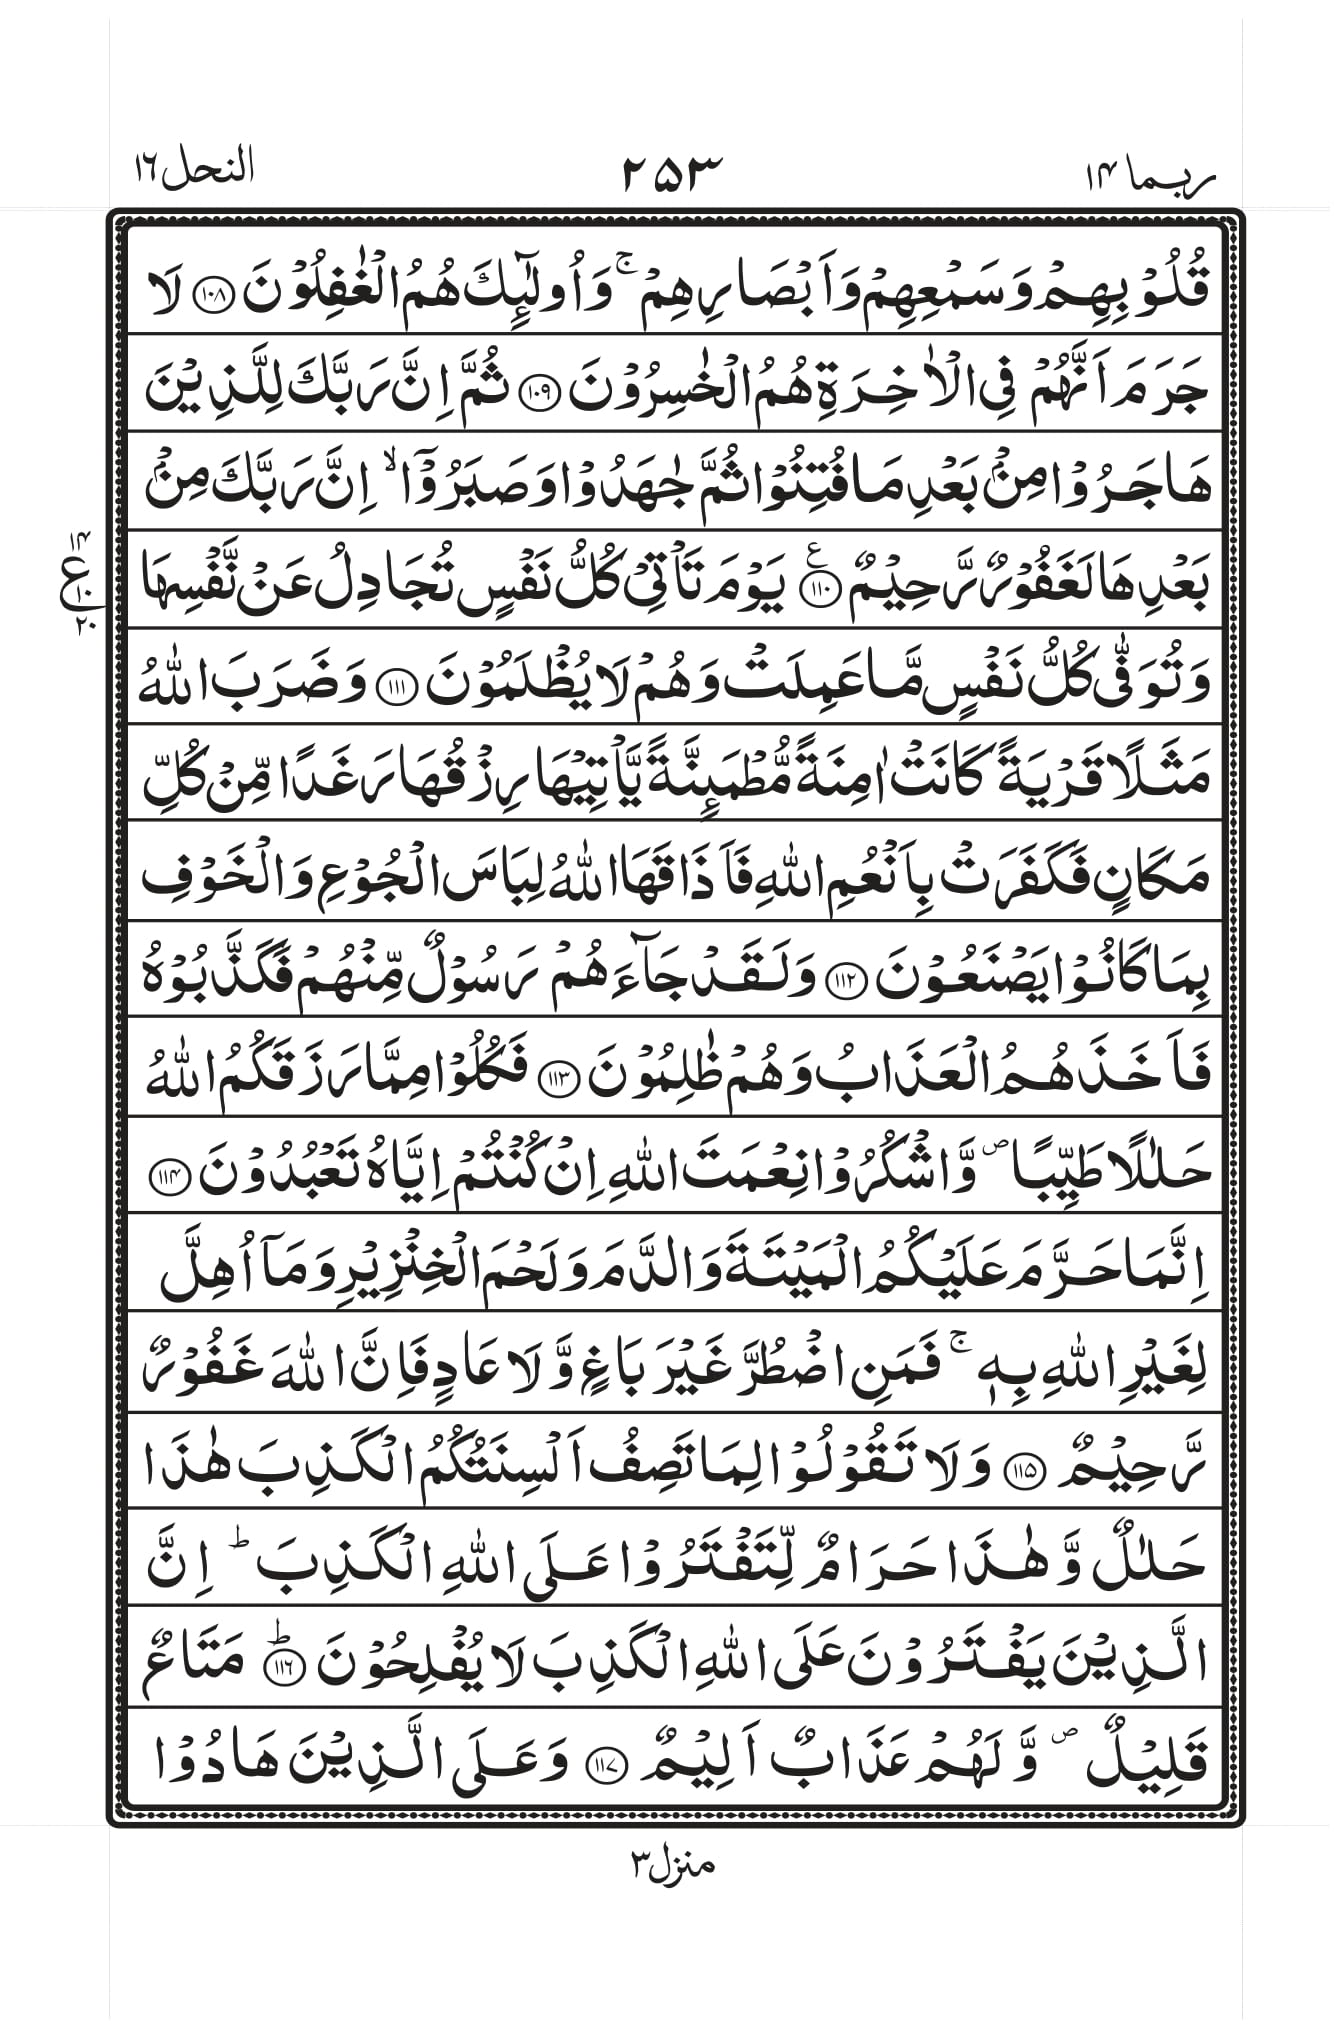 ربما ۱۴ ۲۵۳ النحل ۱۶
قُلُوۡبِهِمۡ وَسَمۡعِهِمۡ وَاَبۡصَارِهِمۡ ۚ وَاُولٰٓئِكَ هُمُ الۡغٰفِلُوۡنَ ﴿۱۰۸﴾ لَا
جَرَمَ اَنَّهُمۡ فِى الۡاٰخِرَةِ هُمُ الۡخٰسِرُوۡنَ ﴿۱۰۹﴾ ثُمَّ اِنَّ رَبَّكَ لِلَّذِيۡنَ
هَاجَرُوۡا مِنۡۢ بَعۡدِ مَا فُتِنُوۡا ثُمَّ جٰهَدُوۡا وَصَبَرُوۡۤا ۙ اِنَّ رَبَّكَ مِنۡۢ
بَعۡدِهَا لَغَفُوۡرٌ رَّحِيۡمٌ ﴿۱۱۰﴾ ع يَوۡمَ تَاۡتِىۡ كُلُّ نَفۡسٍ تُجَادِلُ عَنۡ نَّفۡسِهَا
۱۴ ع ۱۰ ۲۰
وَتُوَفّٰى كُلُّ نَفۡسٍ مَّا عَمِلَتۡ وَهُمۡ لَا يُظۡلَمُوۡنَ ﴿۱۱۱﴾ وَضَرَبَ اللّٰهُ
مَثَلًا قَرۡيَةً كَانَتۡ اٰمِنَةً مُّطۡمَٮِٕنَّةً يَّاۡتِيۡهَا رِزۡقُهَا رَغَدًا مِّنۡ كُلِّ
مَكَانٍ فَكَفَرَتۡ بِاَنۡعُمِ اللّٰهِ فَاَذَاقَهَا اللّٰهُ لِبَاسَ الۡجُوۡعِ وَالۡخَوۡفِ
بِمَا كَانُوۡا يَصۡنَعُوۡنَ ﴿۱۱۲﴾ وَلَقَدۡ جَآءَهُمۡ رَسُوۡلٌ مِّنۡهُمۡ فَكَذَّبُوۡهُ
فَاَخَذَهُمُ الۡعَذَابُ وَهُمۡ ظٰلِمُوۡنَ ﴿۱۱۳﴾ فَكُلُوۡا مِمَّا رَزَقَكُمُ اللّٰهُ
حَلٰلًا طَيِّبًا ص وَّاشۡكُرُوۡا نِعۡمَتَ اللّٰهِ اِنۡ كُنۡتُمۡ اِيَّاهُ تَعۡبُدُوۡنَ ﴿۱۱۴﴾
اِنَّمَا حَرَّمَ عَلَيۡكُمُ الۡمَيۡتَةَ وَالدَّمَ وَلَحۡمَ الۡخِنۡزِيۡرِ وَمَاۤ اُهِلَّ
لِغَيۡرِ اللّٰهِ بِهٖ ۚ فَمَنِ اضۡطُرَّ غَيۡرَ بَاغٍ وَّلَا عَادٍ فَاِنَّ اللّٰهَ غَفُوۡرٌ
رَّحِيۡمٌ ﴿۱۱۵﴾ وَلَا تَقُوۡلُوۡا لِمَا تَصِفُ اَلۡسِنَتُكُمُ الۡكَذِبَ هٰذَا
حَلٰلٌ وَّهٰذَا حَرَامٌ لِّتَفۡتَرُوۡا عَلَى اللّٰهِ الۡكَذِبَ ؕ اِنَّ
الَّذِيۡنَ يَفۡتَرُوۡنَ عَلَى اللّٰهِ الۡكَذِبَ لَا يُفۡلِحُوۡنَ ؕ ﴿۱۱۶﴾ مَتَاعٌ
قَلِيۡلٌ ص وَّلَهُمۡ عَذَابٌ اَلِيۡمٌ ﴿۱۱۷﴾ وَعَلَى الَّذِيۡنَ هَادُوۡا
منزل ۳